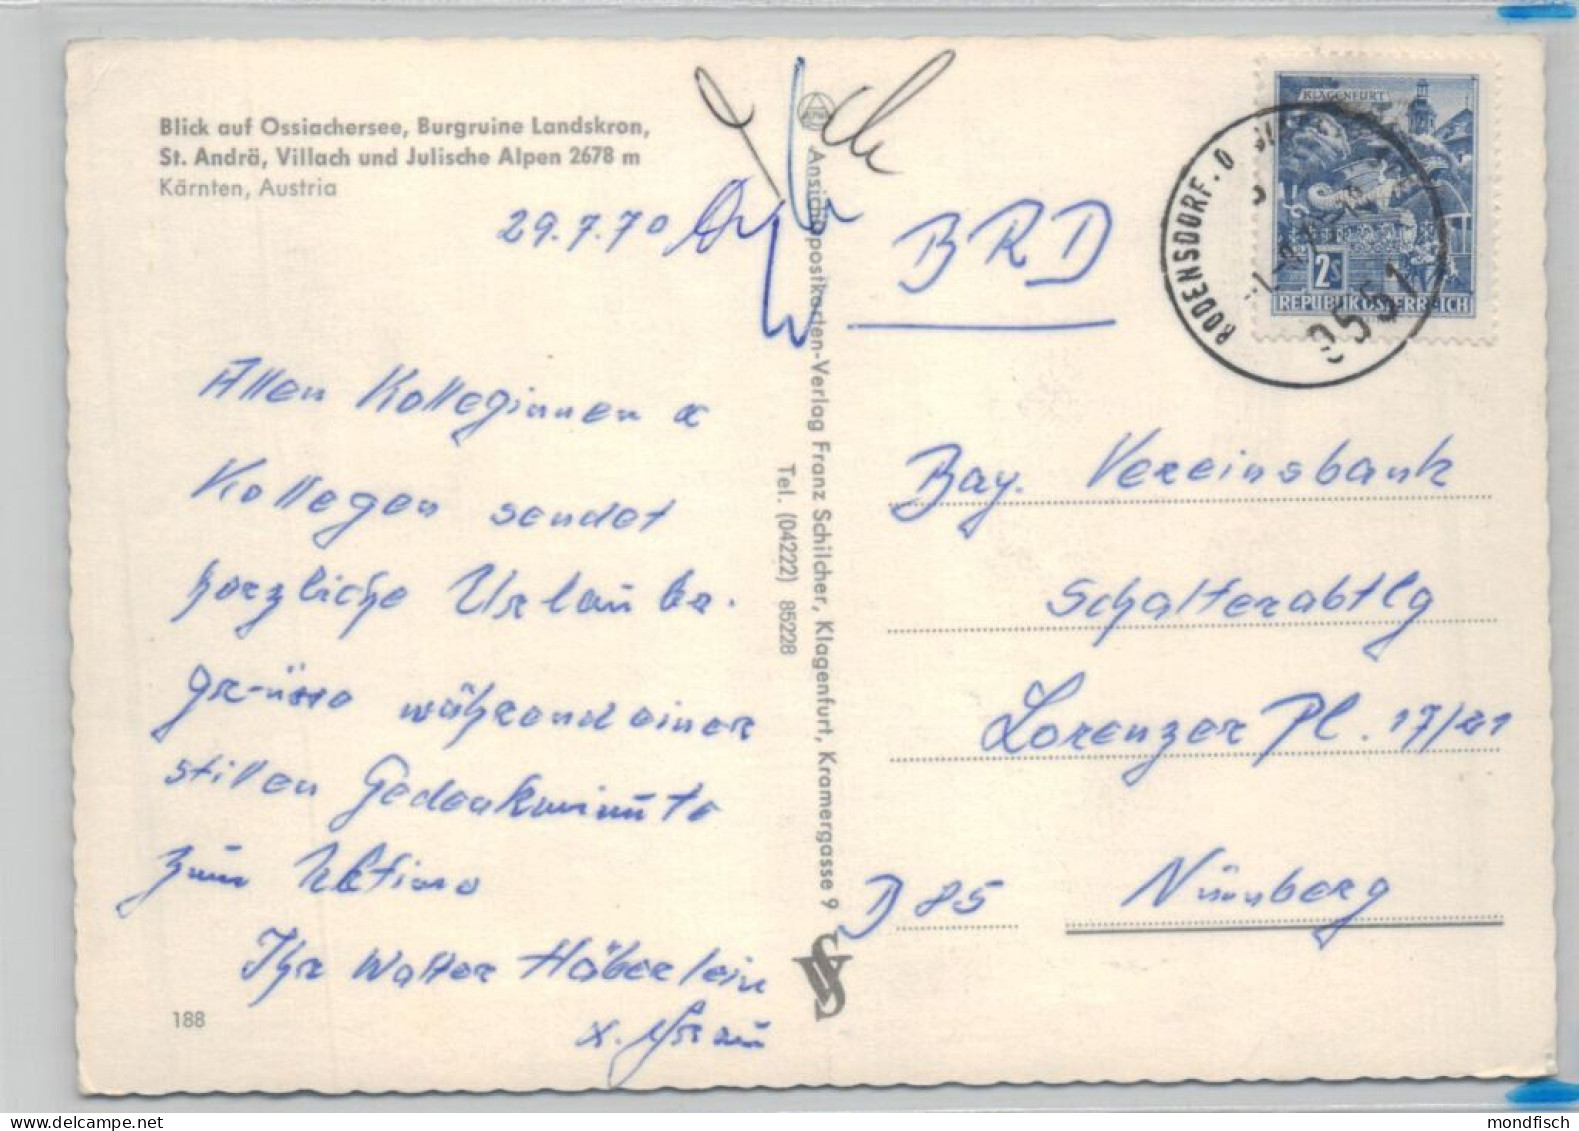 Blick auf Ossiachersee, Burgruine Landskron,
St. Andrä, Villach und Julische Alpen 2678 m
Kärnten, Austria
29.7.70
Allen Kolleginnen &
Kollegen sendet
herzliche Urlaubs-
grüsse während einer
stillen Gedenkminute
zum Ultimo
Ihr Walter Häberlein
&. Frau
188
Ansichtspostkarten-Verlag Franz Schilcher, Klagenfurt, Kramergasse 9
Tel. (04222) 85228
KLAGENFURT
2S
REPUBLIK ÖSTERREICH
RODENSDORF.O
9551
BRD
Bay. Vereinsbank
Schalterabtlg
Lorenzer Pl. 17/21
D 85 Nürnberg
mondfisch